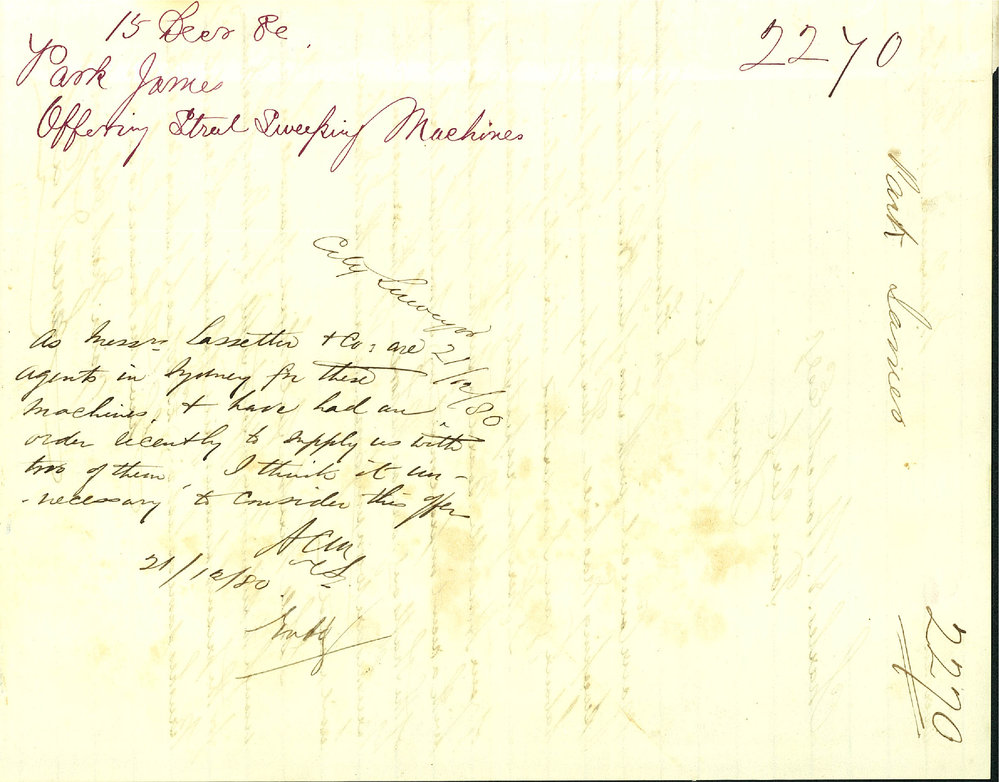 15 Decr 80
2270
Park James
Offering Street Sweeping Machines
City Surveyor
21/12/80
As Messrs Lassetter & Co: are
agents in Sydney for these
machines, & have had an
order recently to supply us with
two of them, I think it un-
-necessary to consider this offer
ACM
CS
21/12/80
Park James
2270